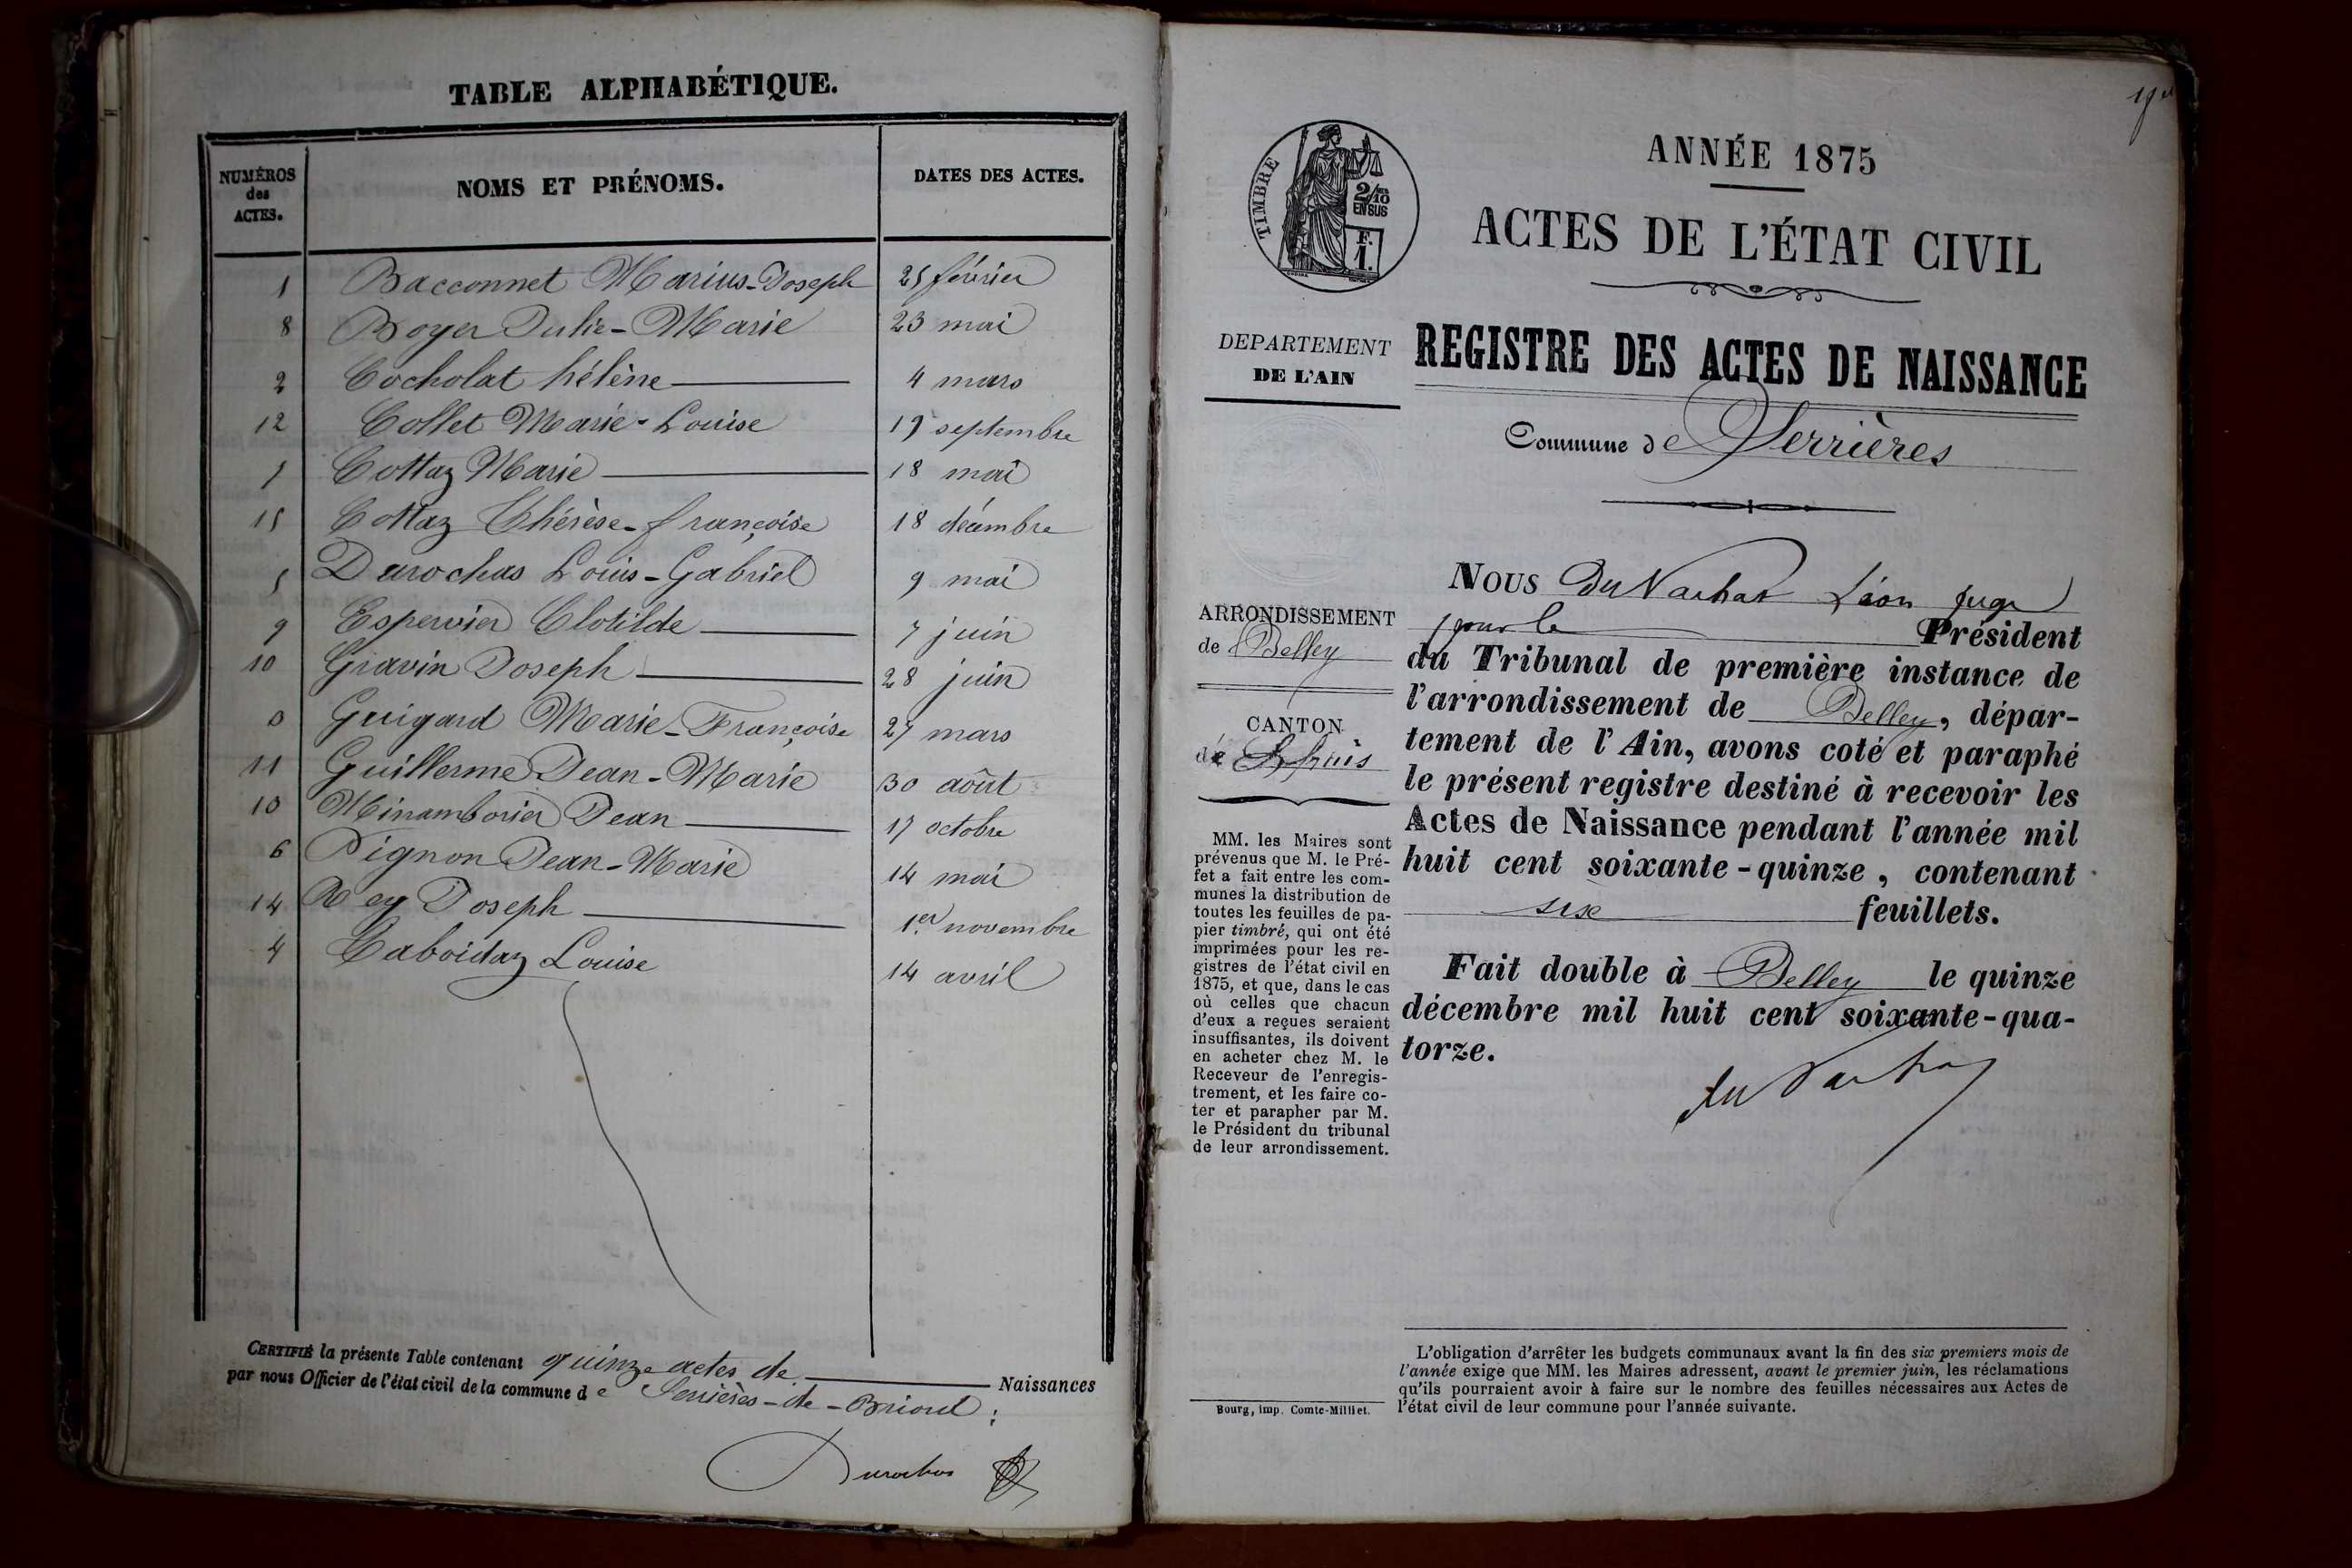 TABLE ALPHABÉTIQUE.
NUMÉROS
des
ACTES.
NOMS ET PRÉNOMS.
DATES DES ACTES.
1 Bacconnet Marius-Joseph 25 février
8 Boyer Julie-Marie 23 mai
2 Cocholat hélène 4 mars
12 Collet Marie-Louise 19 septembre
Cottaz Marie 18 mai
15 Cottaz Thérèse-françoise 18 décembre
5 Durochas Louis-Gabriel 9 mai
9 Espervier Clotilde 7 juin
10 Gravin Joseph 28 juin
Guigard Marie-Françoise 27 mars
11 Guillerme Jean-Marie 30 août
Jean 17 octobre
6 Pignon Jean-Marie 14 mai
14 Rey Joseph 1er novembre
4 Taboidaz Louise 14 avril
CERTIFIÉ la présente Table contenant quinze actes de Naissances
par nous Officier de l'état civil de la commune de Serrières-de-Briord :
Durochas
ANNÉE 1875
TIMBRE
2/10
EN SUS
F.
1.
ACTES DE L'ÉTAT CIVIL
DEPARTEMENT
DE L'AIN
REGISTRE DES ACTES DE NAISSANCE
Commune de Serrières
ARRONDISSEMENT
de Belley
CANTON
de Lhuis
MM. les Maires sont
prévenus que M. le Pré-
fet a fait entre les com-
munes la distribution de
toutes les feuilles de pa-
pier timbré, qui ont été
imprimées pour les re-
gistres de l'état civil en
1875, et que, dans le cas
où celles que chacun
d'eux a reçues seraient
insuffisantes, ils doivent
en acheter chez M. le
Receveur de l'enregis-
trement, et les faire co-
ter et parapher par M.
le Président du tribunal
de leur arrondissement.
Bourg, imp. Comte-Milliet.
NOUS Du Vachat Léon juge
pour le Président
du Tribunal de première instance de
l'arrondissement de Belley, dépar-
tement de l'Ain, avons coté et paraphé
le présent registre destiné à recevoir les
Actes de Naissance pendant l'année mil
huit cent soixante-quinze, contenant
six feuillets.
Fait double à Belley le quinze
décembre mil huit cent soixante-qua-
torze.
du Vachat
L'obligation d'arrêter les budgets communaux avant la fin des six premiers mois de
l'année exige que MM. les Maires adressent, avant le premier juin, les réclamations
qu'ils pourraient avoir à faire sur le nombre des feuilles nécessaires aux Actes de
l'état civil de leur commune pour l'année suivante.